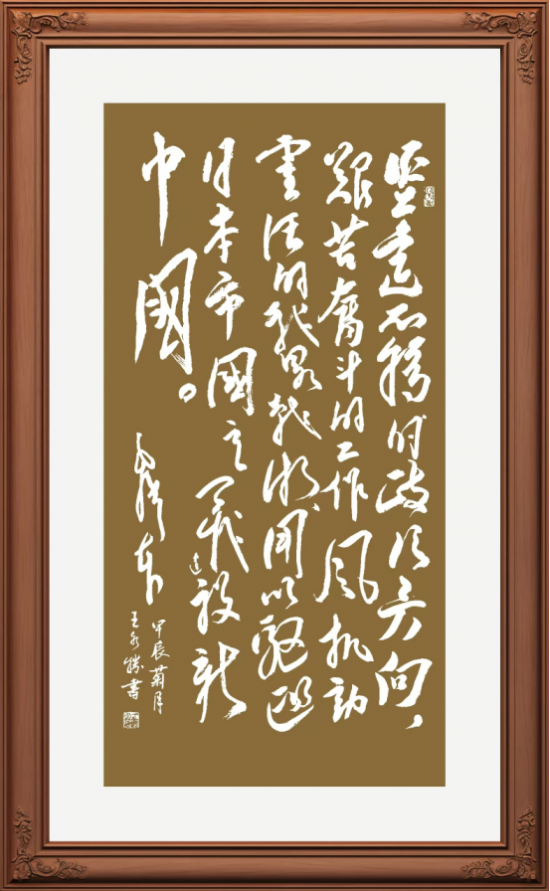 坚定不移的政治方向，
艰苦奋斗的工作风机动
灵活的战略战术，用以驱逐
日本帝国主义建设新
中国。
毛泽东
甲辰菊月
王永胜书